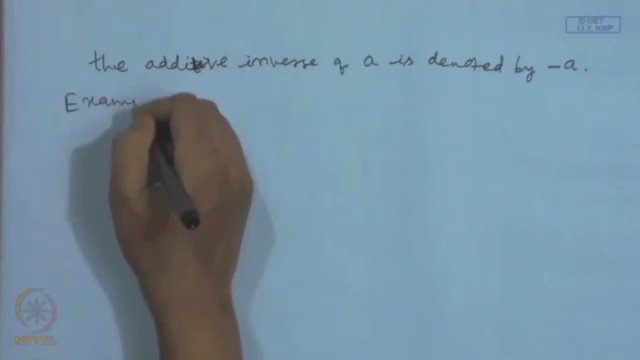 © CET
I.I.T. KGP
the additive inverse of a is denoted by -a.
Exam
NPTEL